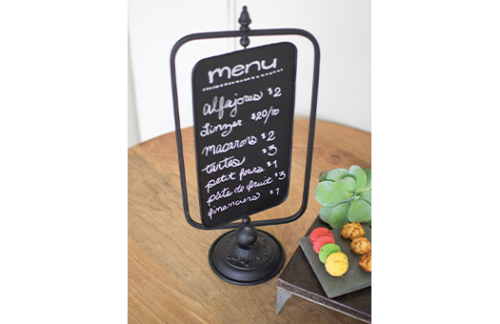 menu
alfajores $2
Linzer $20/10
macarons $2
tartes $3
petit fours $1
pâte de fruit $3
financiers $1